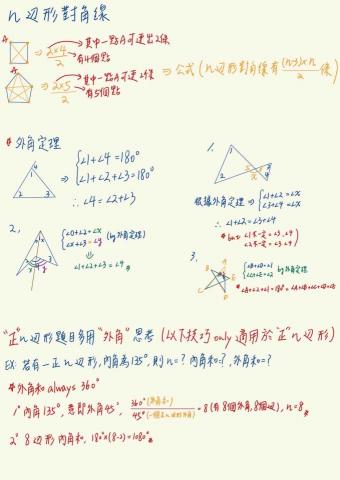 n 边形對角線
A
⇒ 2×4/2
其中一點A可連出2條
有4個點
⇒ 2×5/2
其中一點A可連2條
有5個點
⇒ 公式 (n边形對角線有 (n-3)×n/2 條)
* 外角定理
⇒ { ∠1+∠4=180°
∠1+∠2+∠3=180°
∴ ∠4=∠2+∠3
1.
根據外角定理 ⇒ { ∠1+∠2=∠x
∠3+∠4=∠x
∴ ∠1+∠2=∠3+∠4
2.
(by外角定理)
∠1+∠2+∠3=∠4
3.
by外角定理
"正"n边形題目多用"外角"思考 (以下技巧only適用於"正"n边形)
EX: 若有一正n边形, 內角為135°, 則n=? 內角和=? 外角和=?
* 外角和 always 360°
1° 內角135°, 意即外角45°, 360°(外角和)/45° = 8 (有8個外角, 8個边), n=8
2° 8边形內角和, 180°×(8-2)=1080°